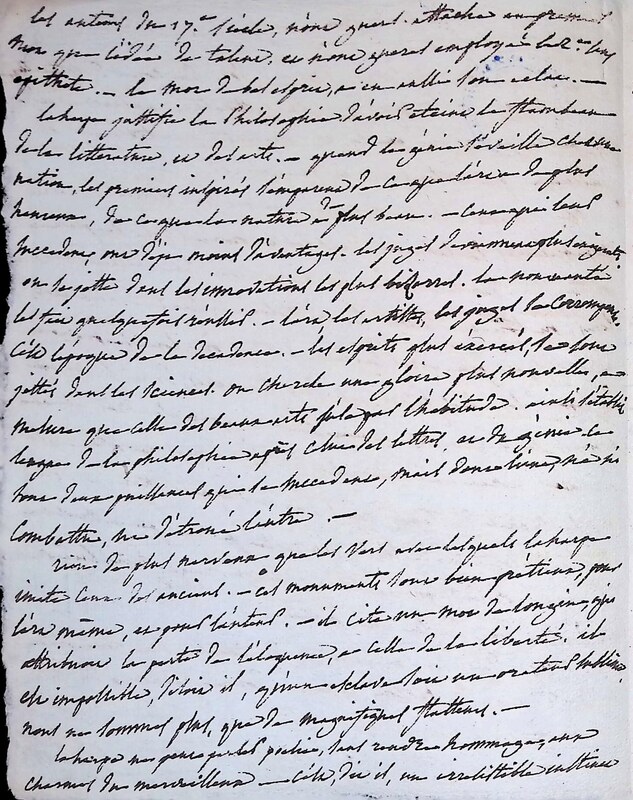 les auteurs du 17.e siècle, n'ont guères attaché au premier
mot que l'idée de talent, et n'ont guères employé le 2.e sans
epithete. — le mot de bel esprit, a en vieilli son éclat. —
laharpe justifie la Philosophie d'avoir eteint le flambeau
de la litterature, et des arts. — quand le génie s'éveille chez une
nation, les premiers inspirés s'emparent de ce que l'art a de plus
heureux, de ce que la nature a de plus beau. — ceux qui leur
succedent, ont déja moins d'avantages. les juges deviennent plus
on se jette dans les innovations les plus bizarres. la nouveauté
les fait quelquefois réussir. — l'art, les artistes, les juges se corrompent.
c'est l'époque de la decadence. — les esprits plus exercés, se sont
jettés dans les sciences. on cherche une gloire plus nouvelle, a
mesure que celle des beaux arts s'use par l'habitude. ainsi s'établit
le regne de la philosophie après celui des lettres, et du génie. ce
sont deux puissances qui se succedent, mais dont l'une, n'a ni
combattu, ni détroné l'autre. —
rien de plus nerveux que les vers avec lesquels laharpe
imite ceux des anciens. — ces monuments sont bien prétieux, pour
l'art même, et pour l'auteur. — il cite un mot de longin, qui
attribuoit la perte de l'éloquence, a celle de la liberté. il
est impossible, disoit il, qu'un esclave soit un orateur sublime.
nous ne sommes plus, que de magnifiques flatteurs. —
laharpe ne pense pas poésie, sans rendre hommage, aux
charmes du merveilleux — c'est, dit il, un irrésistible instinct